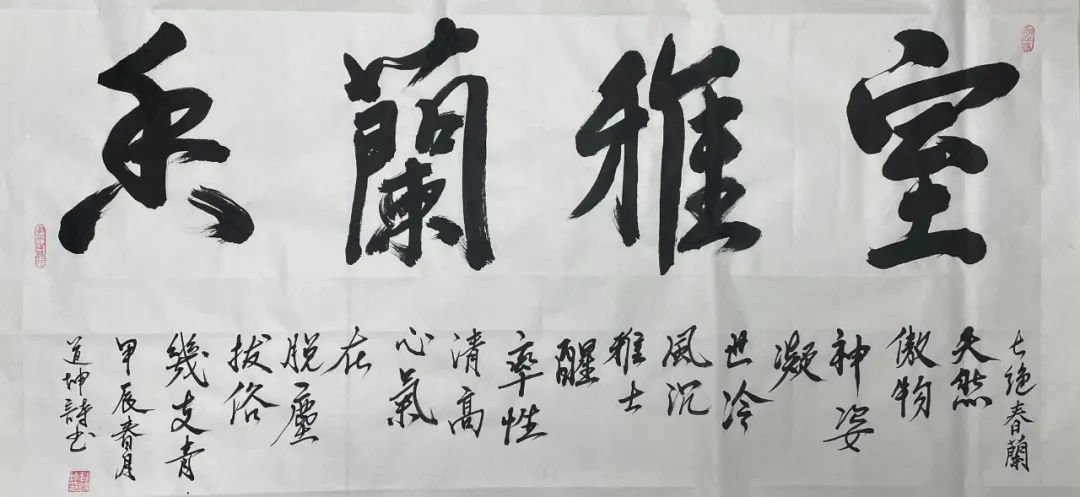 室雅蘭香
七绝春蘭
天然
傲物
神姿
凝
世冷
風沉
雅士
醒
率性
清高
心氣
在
脱塵
拔俗
幾支青
甲辰春月
道坤詩书